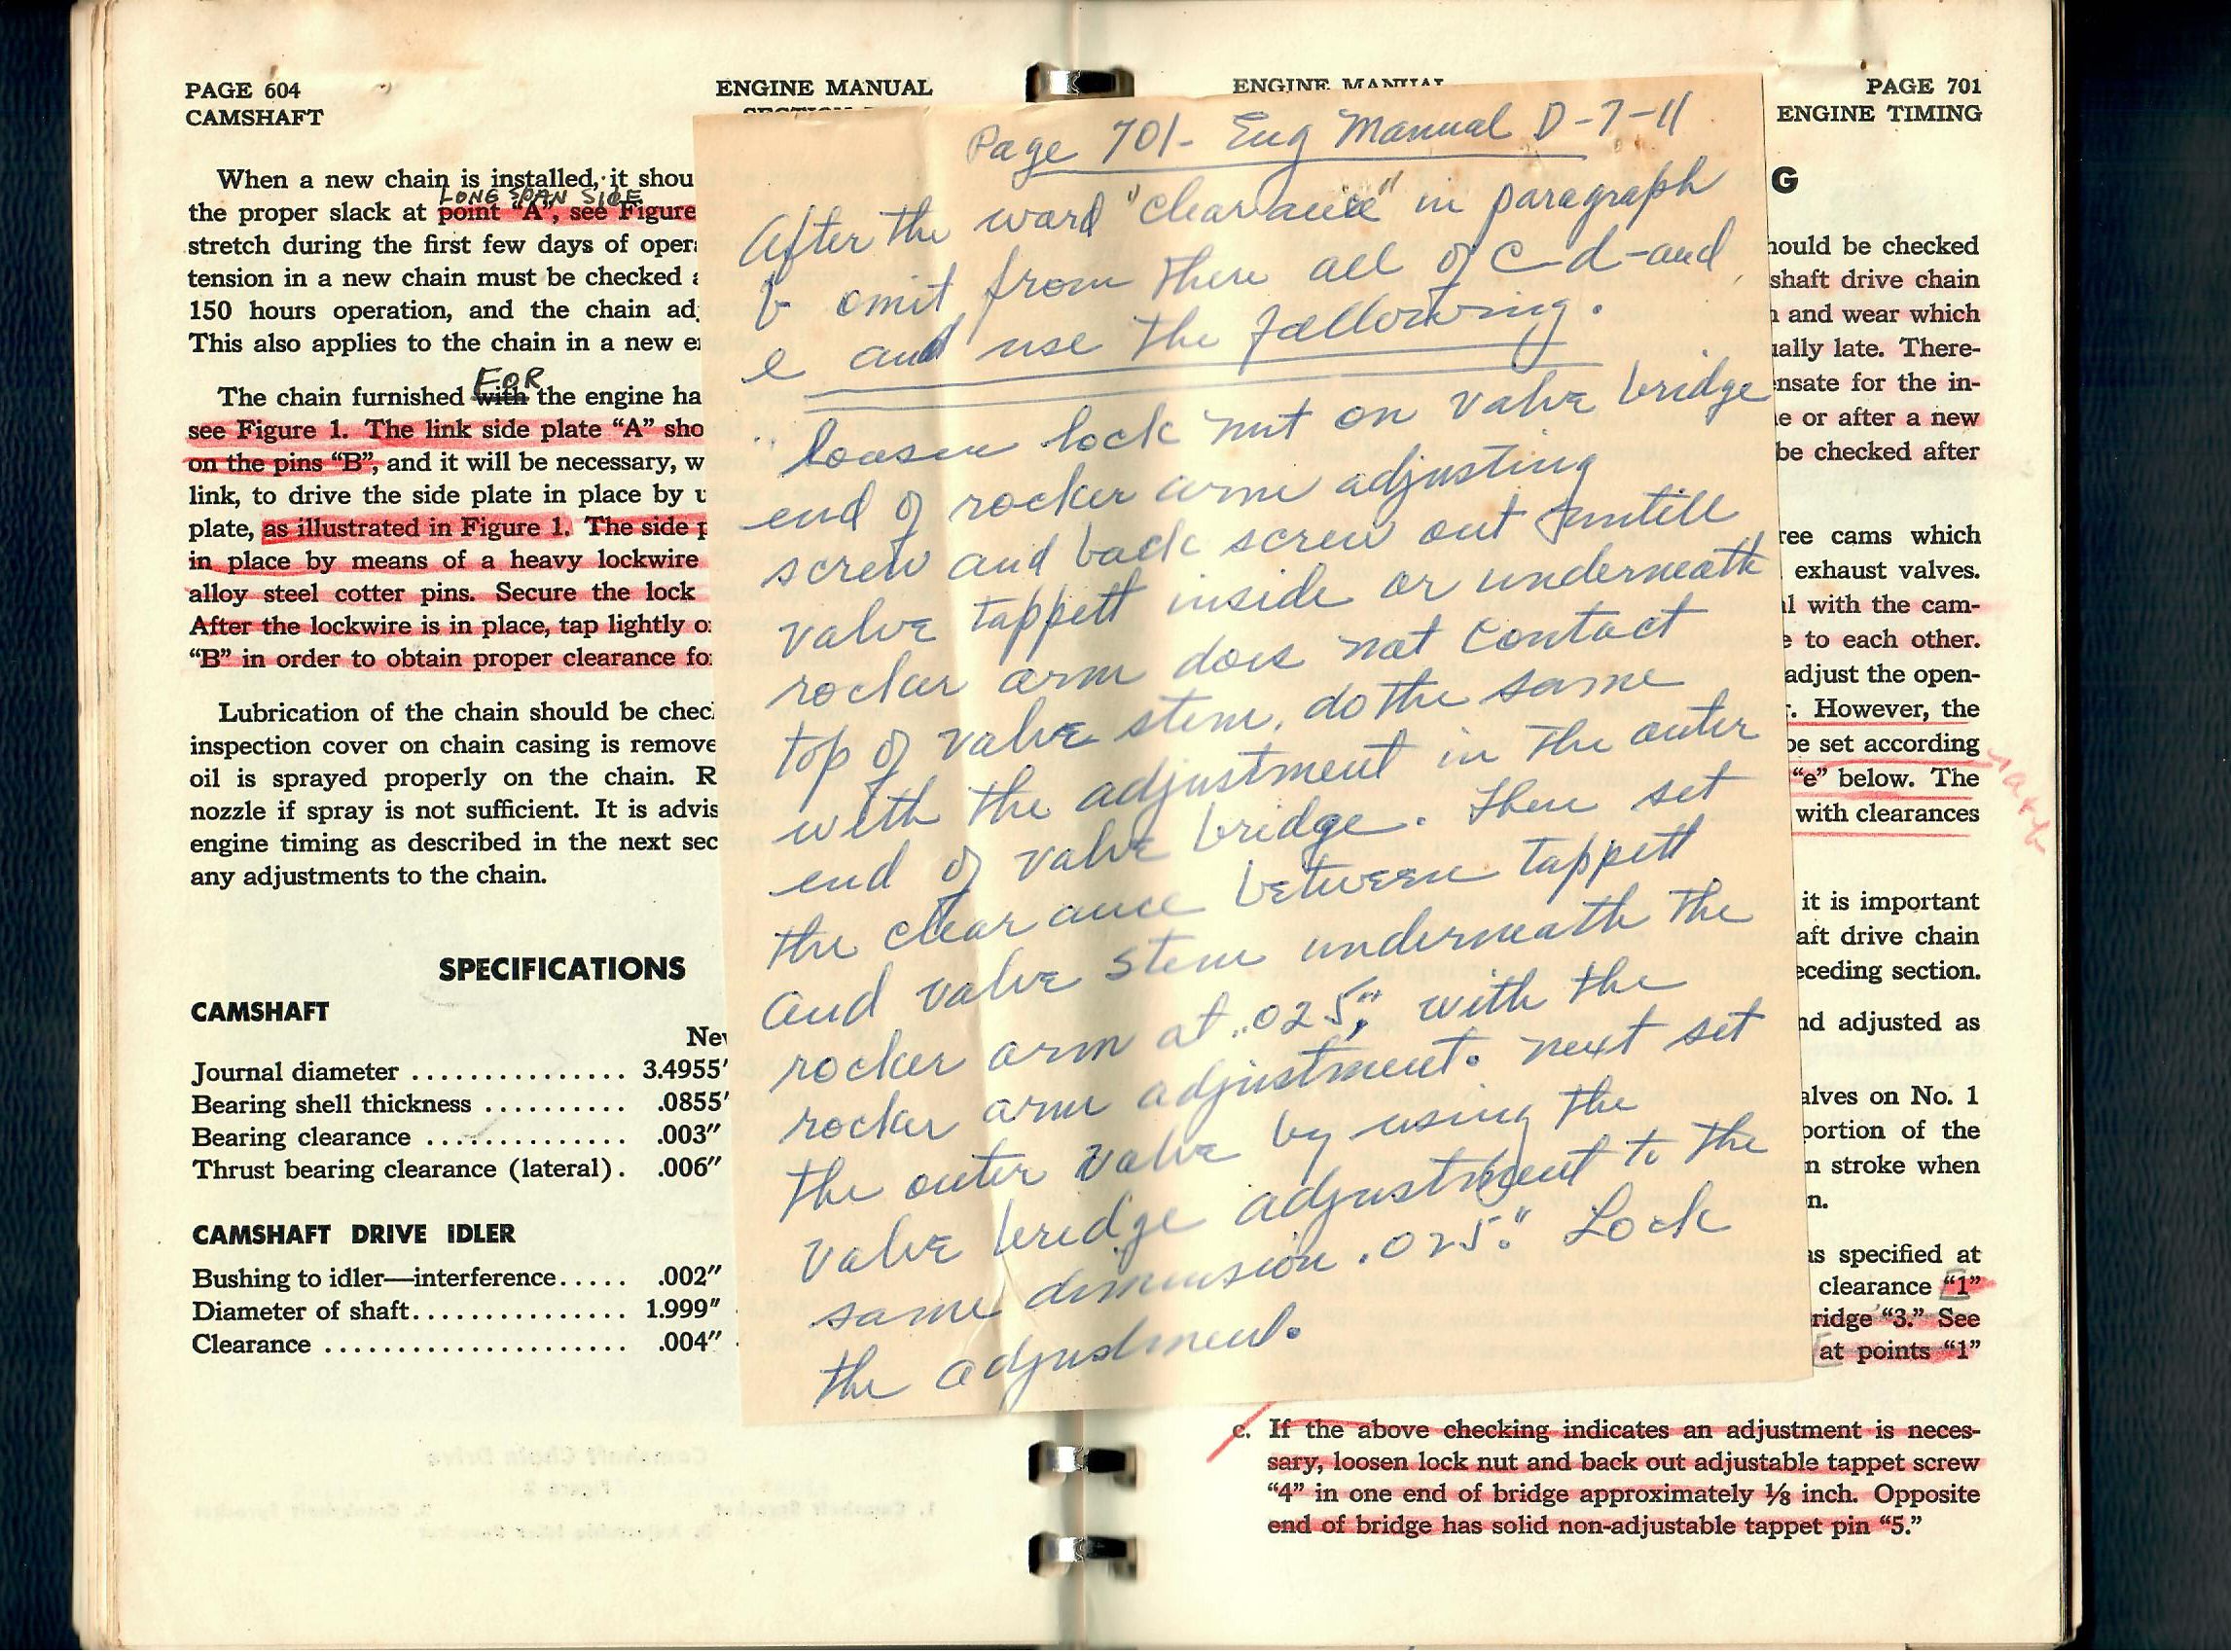 PAGE 604
CAMSHAFT
ENGINE MANUAL
When a new chain is installed, it shou
LONG SPAN SIDE
the proper slack at point “A”, see Figure
stretch during the first few days of oper
tension in a new chain must be checked
150 hours operation, and the chain ad
This also applies to the chain in a new e
FOR
The chain furnished with the engine ha
see Figure 1. The link side plate “A” sho
on the pins “B”, and it will be necessary, w
link, to drive the side plate in place by u
plate, as illustrated in Figure 1. The side p
in place by means of a heavy lockwire
alloy steel cotter pins. Secure the lock
After the lockwire is in place, tap lightly o
“B” in order to obtain proper clearance fo
Lubrication of the chain should be chec
inspection cover on chain casing is remove
oil is sprayed properly on the chain. R
nozzle if spray is not sufficient. It is advis
engine timing as described in the next sec
any adjustments to the chain.
SPECIFICATIONS
CAMSHAFT
Ne
Journal diameter ............... 3.4955"
Bearing shell thickness .......... .0855"
Bearing clearance .............. .003"
Thrust bearing clearance (lateral). .006"
CAMSHAFT DRIVE IDLER
Bushing to idler—interference..... .002"
Diameter of shaft................ 1.999"
Clearance ...................... .004"
Page 701- Eng Manual D-7-11
After the word "clearance" in paragraph
b omit from there all of C-d-and
e and use the following.
"loosen lock nut on valve bridge
end of rocker arm adjusting
screw and back screw out untill
valve tappett inside or underneath
rocker arm does not contact
top of valve stem. do the same
with the adjustment in the outer
end of valve bridge. Then set
the clearance between tappett
and valve stem underneath the
rocker arm at .025", with the
rocker arm adjustment. next set
the outer valve by using the
valve bridge adjustment to the
same dimension .025". Lock
the adjustment.
ENGINE MANUAL
PAGE 701
ENGINE TIMING
G
hould be checked
shaft drive chain
and wear which
ually late. There-
ensate for the in-
e or after a new
be checked after
ree cams which
exhaust valves.
l with the cam-
e to each other.
adjust the open-
r. However, the
be set according
“e” below. The
with clearances
it is important
aft drive chain
eceding section.
nd adjusted as
alves on No. 1
portion of the
n stroke when
n.
as specified at
clearance “1”
ridge “3.” See
at points “1”
c. If the above checking indicates an adjustment is neces-
sary, loosen lock nut and back out adjustable tappet screw
“4” in one end of bridge approximately ⅛ inch. Opposite
end of bridge has solid non-adjustable tappet pin “5.”